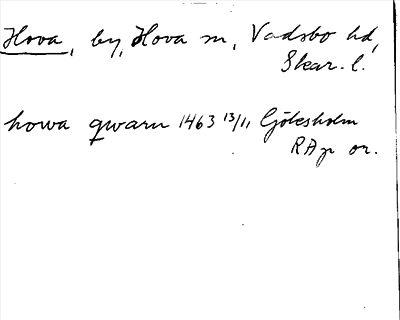 Hova, by, Hova sn, Vadsbo hd,
Skar. l.
howa qwarn 1463 13/1, Göksholm
RAp or.